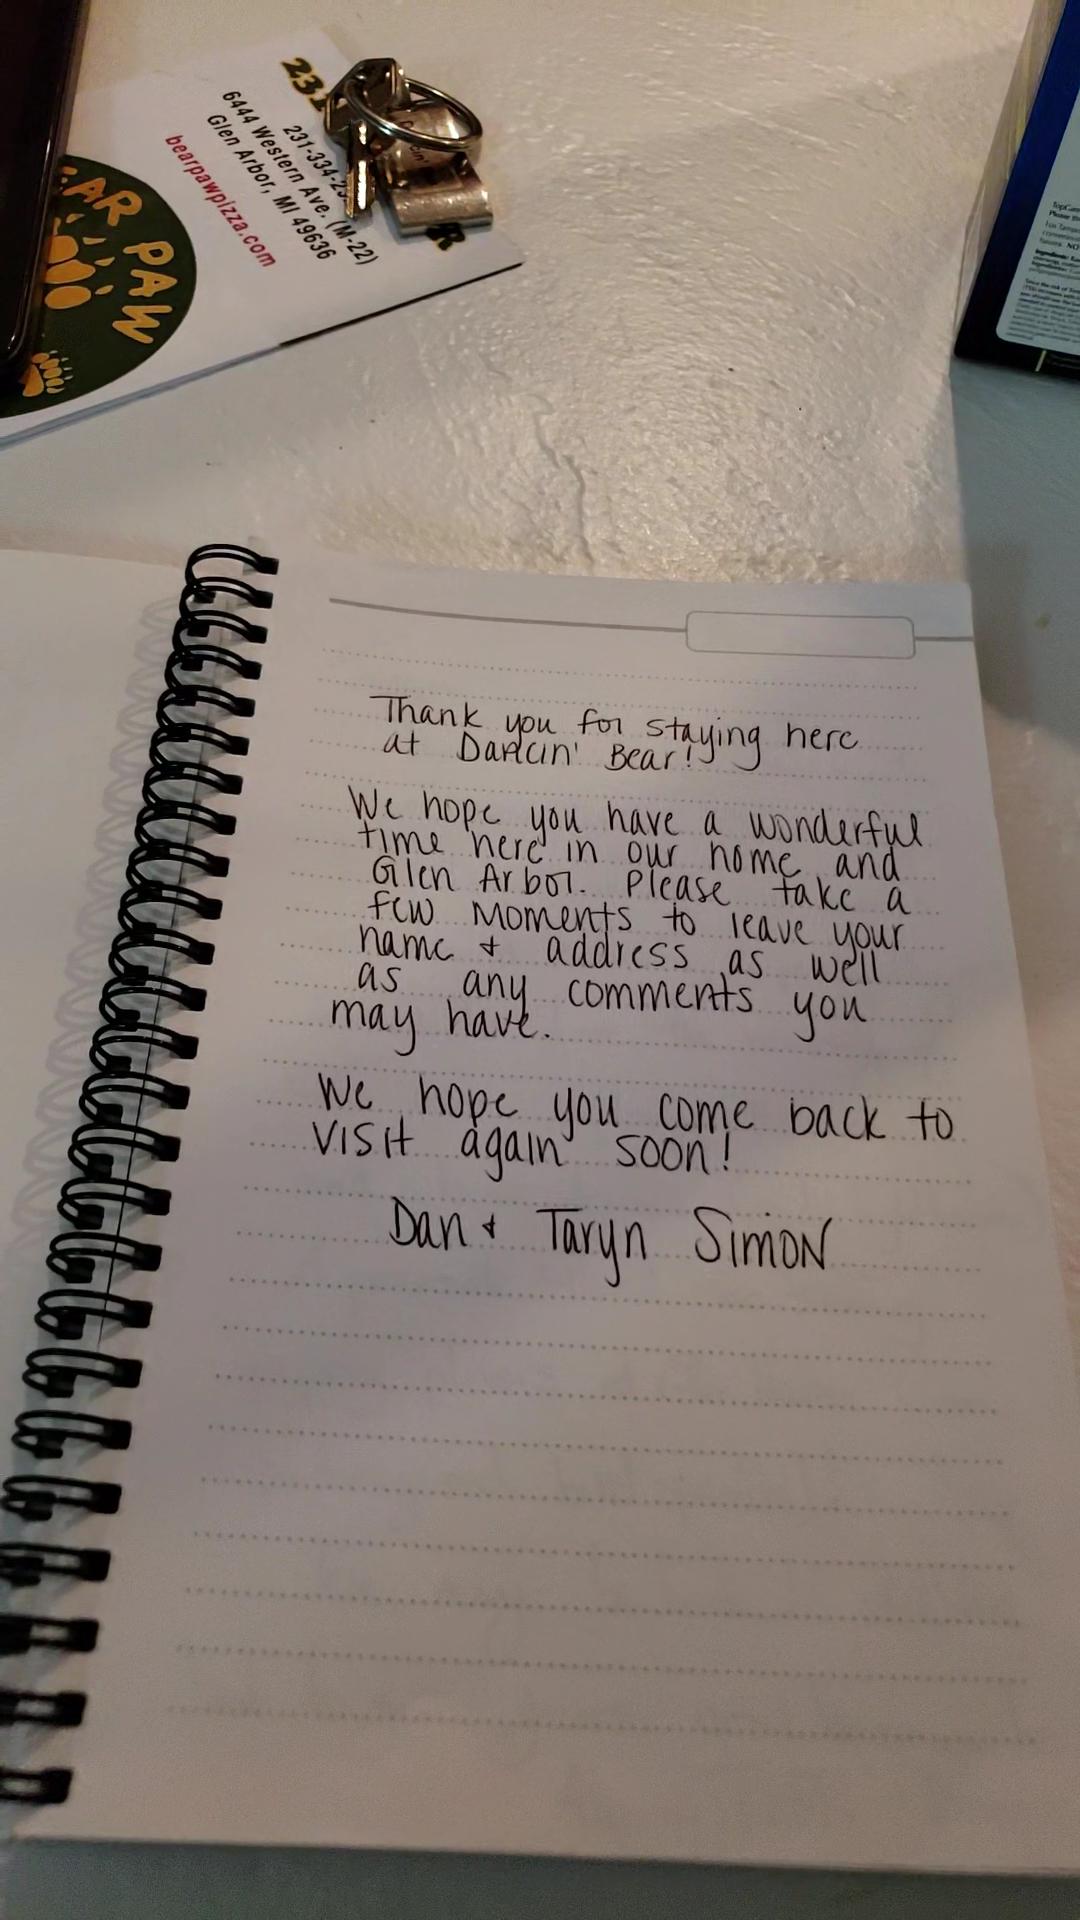 231
231-334-2
6444 Western Ave. (M-22)
Glen Arbor, MI 49636
bearpawpizza.com
EAR PAW
R
Thank you for staying here
at Dancin' Bear!
We hope you have a wonderful
time here in our home and
Glen Arbor. Please take a
few moments to leave your
name & address as well
as any comments you
may have.
We hope you come back to
visit again soon!
Dan & Taryn Simon